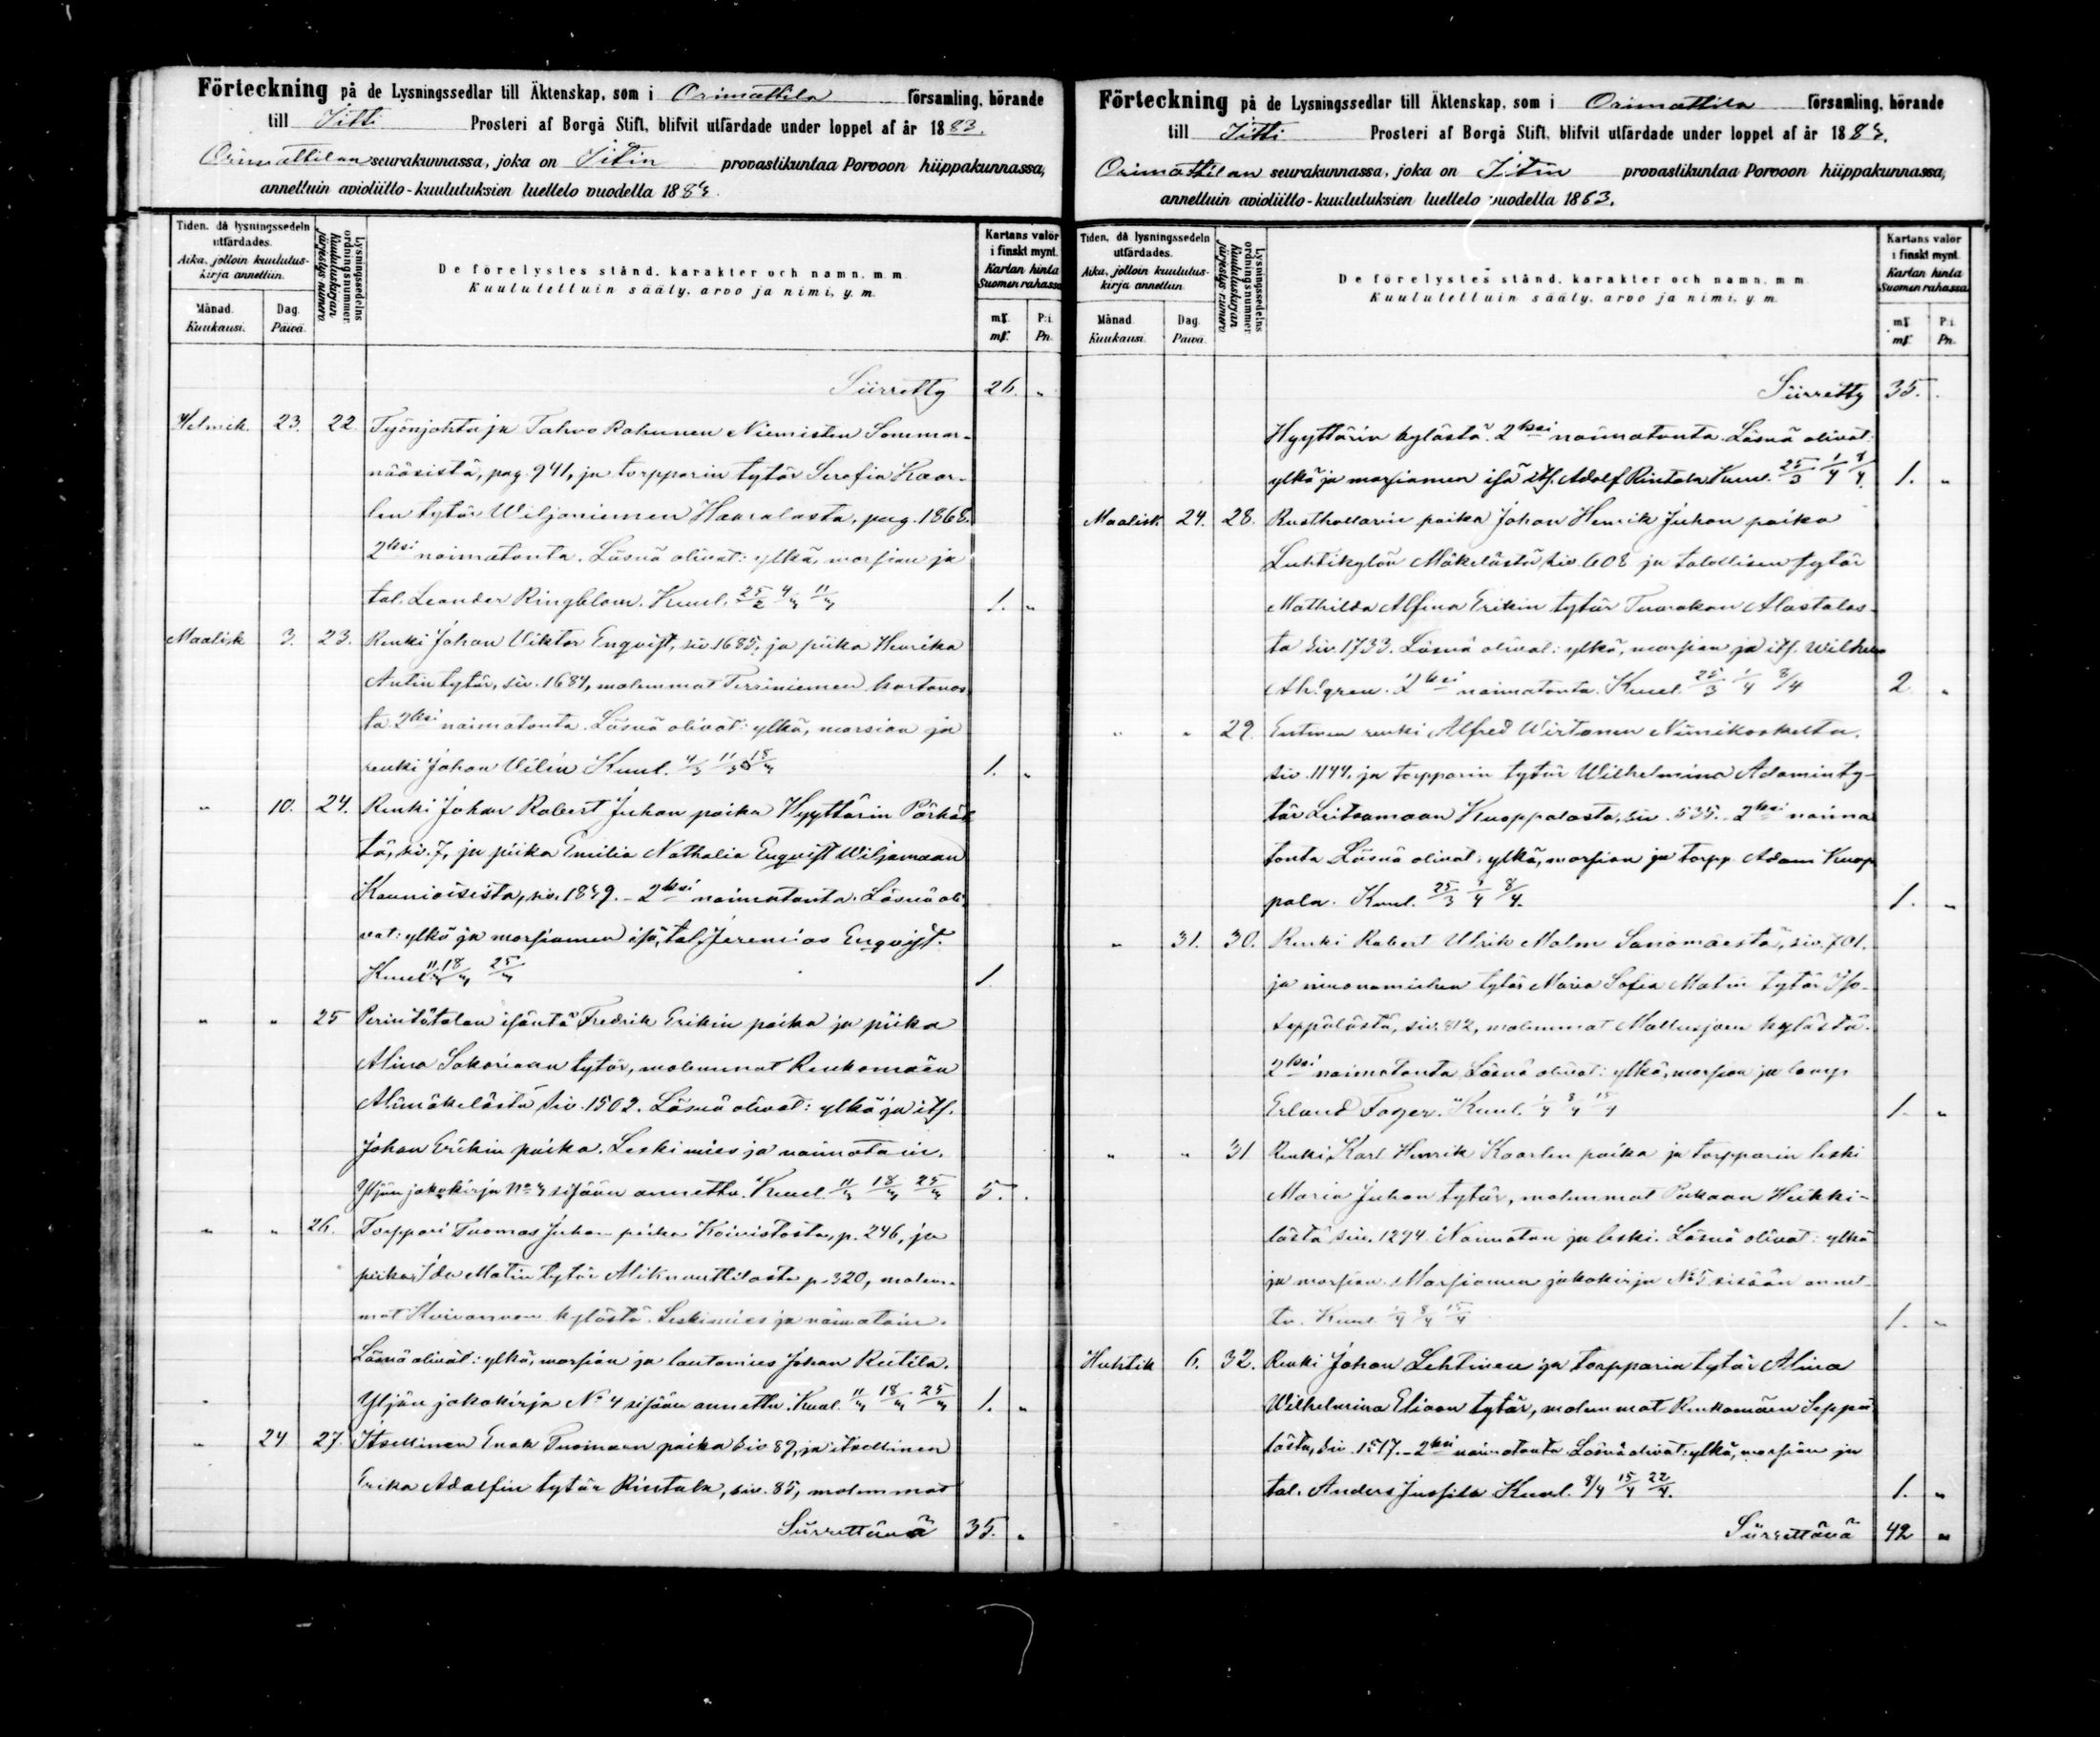 Förteckning på de Lysningssedlar till Äktenskap, som i Orimattila församling, hörande
till Iitti Prosteri af Borgå Stift, blifvit utfärdade under loppet af år 1883.
Orimattilan seurakunnassa, joka on Iitin provastikuntaa Porvoon hiippakunnassa,
annettuin avioliitto-kuulutuksien luettelo vuodella 1883.
Tiden, då lysningssedeln utfärdades.
Aika, jolloin kuulutuskirja annettiin.
Månad. Kuukausi.
Dag. Päivä.
Lysningssedelns ordningsnummer. Kuulutuskirjan järjestys numero.
De förelystes stånd, karakter och namn, m. m.
Kuulutettuin sääty, arvo ja nimi, y. m.
Kartans valör i finskt mynt.
Kartan hinta Suomen rahassa.
mƒ. P:i.
mƒ. Pn.
Siirretty 26. "
Helmik. 23. 22. Työnjohtaja Tahvo Rahunen Niemisten Sommar-
nääsistä, pag. 941, ja torpparin tytär Serafia Kaar-
len tytär Wiljaniemen Haaralasta, pag. 1868.
2ksi naimatonta. Läsnä olivat: ylkä, morsian ja
tal. Leander Ringblom. Kuul. 25/2 4/3 11/3 1. "
Maalisk. 3. 23. Renki Johan Viktor Enqvist, siv. 1685, ja piika Henrika
Antin tytär, siv. 1684, molemmat Terriniemen kartanos-
ta 2ksi naimatonta. Läsnä olivat: ylkä, morsian ja
renki Johan Vilén Kuul. 4/3 11/3 18/3 1. "
" 10. 24. Renki Johan Robert Juhan poika Hyyttärin Pärhäs-
tä, siv. 7, ja piika Emilia Nathalia Enqvist Wiljamaan
Kauniaisista, siv. 1849. - 2ksi naimatonta. Läsnä oli-
vat: ylkä ja morsiamen isä, tal. Jeremias Enqvist.
Kuul. 11/3 18/3 25/3 1.
" " 25 Perintötalon isäntä Fredrik Erikin poika ja piika
Alina Sakariaan tytär, molemmat Renkomäen
Alimäkelästä siv. 1502. Läsnä olivat: ylkä ja itj.
Johan Erikin poika. Leskimies ja naimatoin.
Yljän jakokirja No 3 sisään annettu. Kuul. 11/3 18/3 25/3 5. .
" " 26. Torppari Tuomas Juhan poika Koivistosta, p. 246, ja
piika Ida Matin tytär Aliknuuttilasta p. 320, molem-
mat Koivanoen kylästä. Leskimies ja naimatoin.
Läsnä olivat: ylkä, morsian ja lautamies Johan Rutila.
Yljän jakokirja No 4 sisään annettu. Kuul. 11/3 18/3 25/3 1. "
" 24 27. Itsellinen Enok Tuomaan poika siv 89, ja itsellinen
Erika Adolfin tytär Rintala, siv. 85, molemmat
Siirrettävä 35. "
Förteckning på de Lysningssedlar till Äktenskap, som i Orimattila församling, hörande
till Iitti Prosteri af Borgå Stift, blifvit utfärdade under loppet af år 1883.
Orimattilan seurakunnassa, joka on Iitin provastikuntaa Porvoon hiippakunnassa,
annettuin avioliitto-kuulutuksien luettelo vuodella 1883.
Tiden, då lysningssedeln utfärdades.
Aika, jolloin kuulutuskirja annettiin.
Månad. Kuukausi.
Dag. Päivä.
Lysningssedelns ordningsnummer. Kuulutuskirjan järjestys numero.
De förelystes stånd, karakter och namn, m. m.
Kuulutettuin sääty, arvo ja nimi, y. m.
Kartans valör i finskt mynt.
Kartan hinta Suomen rahassa.
mƒ. P:i.
mƒ. Pn.
Siirretty 35. .
Hyyttärin kylästä. 2ksi naimatonta. Läsnä olivat:
ylkä ja morsiamen isä itj. Adolf Rintala Kuul. 25/3 1/4 8/4 1. "
Maalisk. 24. 28. Rusthollarin poika Johan Henrik Juhan poika
Luhtikylän Mäkelästä siv. 608 ja talollisen tytär
Mathilda Alfina Erikin tytär Tuorakan Alastalos-
ta siv. 1733. Läsnä olivat: ylkä, morsian ja itj. Wilhem
Ahlgren. 2ksi naimatonta. Kuul. 25/3 1/4 8/4 2 "
" " 29. Entinen renki Alfred Wirtanen Niinikoskelta,
siv. 1144, ja torpparin tytär Wilhelmina Adaminty-
tär Leitsamaan Kuoppalasta, siv. 535. - 2ksi naima
tonta Läsnä olivat: ylkä, morsian ja torpp. Adam Kuop
pala. Kuul. 25/3 1/4 8/4. 1. "
" 31. 30. Renki Robert Ulrik Malm Sanomäestä, siv. 701.
ja muonamiehen tytär Maria Sofia Matin tytär Iso-
seppälästä, siv. 812, molemmat Mallusjoen kylästä.
2ksi naimatonta Läsnä olivat: ylkä, morsian ja lamp.
Erland Fager. Kuul. 1/4 8/4 15/4 1. "
" " 31 Renki Karl Henrik Kaarlen poika ja torpparin leski
Maria Juhan tytär, molemmat Pakaan Heikki-
lästä siv. 1294 Naimaton ja leski. Läsnä olivat: ylkä
ja morsian. Morsiamen jakokirja No 5 sisään annet-
tu. Kuul. 1/4 8/4 15/4 1. "
Huhtik. 6. 32. Renki Johan Lehtinen ja torpparin tytär Alina
Wilhelmina Eliaan tytär, molemmat Renkomäen Seppä
lästä, siv. 1517. - 2ksi naimatonta. Läsnä olivat: ylkä, morsian ja
tal. Anders Jussila Kuul. 8/4 15/4 22/4. 1. "
Siirrettävä 42 "